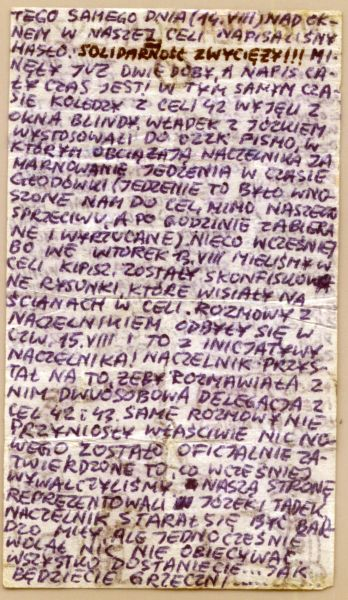 TEGO SAMEGO DNIA (14.VIII) NAD OK-
NEM W NASZEJ CELI NAPISALIŚMY
HASŁO: SOLIDARNOŚĆ ZWYCIĘŻY!!! MI-
NĘŁY JUŻ DWIE DOBY, A NAPIS CA-
ŁY CZAS JEST! W TYM SAMYM CZA-
SIE KOLEDZY Z CELI 42 WYJĘLI Z
OKNA BLINDY. WŁADEK Z JÓZKIEM
WYSTOSOWALI DO OZZK PISMO, W
KTÓRYM OBCIĄŻAJĄ NACZELNIKA ZA
MARNOWANIE JEDZENIA W CZASIE
GŁODÓWKI (JEDZENIE TO BYŁO WNO-
SZONE NAM DO CEL, MIMO NASZEGO
SPRZECIWU, A PO GODZINIE ZABIERA-
NE I WYRZUCANE). NIECO WCZEŚNIEJ
BO WE WTOREK 13.VIII MIELIŚMY W
CELI KIPISZ. ZOSTAŁY SKONFISKOWA-
NE RYSUNKI, KTÓRE WISIAŁY NA
ŚCIANACH W CELI. ROZMOWY Z
NACZELNIKIEM ODBYŁY SIĘ W
CZW. 15.VIII I TO Z INICJATYWY
NACZELNIKA! NACZELNIK PRZYS-
TAŁ NA TO, ŻEBY ROZMAWIAŁA Z
NIM DWUOSOBOWA DELEGACJA Z
CEL 42 i 43. SAME ROZMOWY NIE
PRZYNIOSŁY WŁAŚCIWIE NIC NO-
WEGO. ZOSTAŁO OFICJALNIE ZA-
TWIERDZONE TO, CO WCZEŚNIEJ
WYWALCZYLIŚMY. NASZĄ STRONĘ
REPREZENTOWALI JÓZEK i TADEK.
NACZELNIK STARAŁ SIĘ BYĆ BAR-
DZO MIŁY, ALE JEDNOCZEŚNIE
WOLAŁ NIC NIE OBIECYWAĆ.
WSZYSTKO DOSTANIECIE... JAK
BĘDZIECIE GRZECZNI......